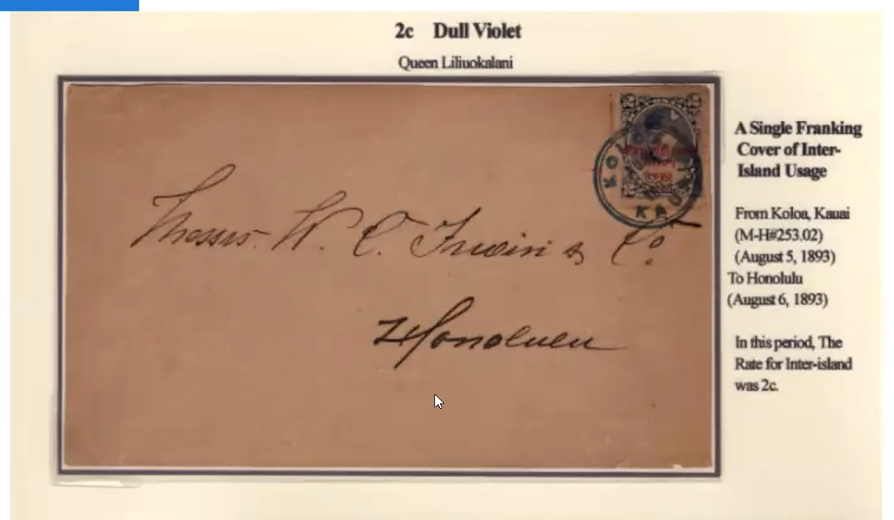 2c Dull Violet
Queen Liliuokalani
KOLOA
KAUAI
Messrs. W. G. Irwin & Co.
Honolulu
A Single Franking
Cover of Inter-
Island Usage
From Koloa, Kauai
(M-H#253.02)
(August 5, 1893)
To Honolulu
(August 6, 1893)
In this period, The
Rate for Inter-island
was 2c.